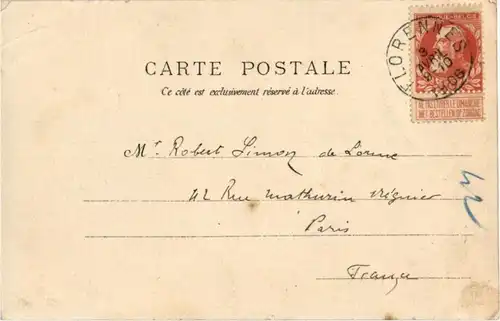 BELGIE
FLORENNES
1905
CARTE POSTALE
Ce côté est exclusivement réservé à l'adresse.
NE PAS LIVRER LE DIMANCHE
NIET BESTELLEN OP ZONDAG
Mr. Robert Simon de Lorme
42 Rue Mathurin Régnier
42
Paris
France